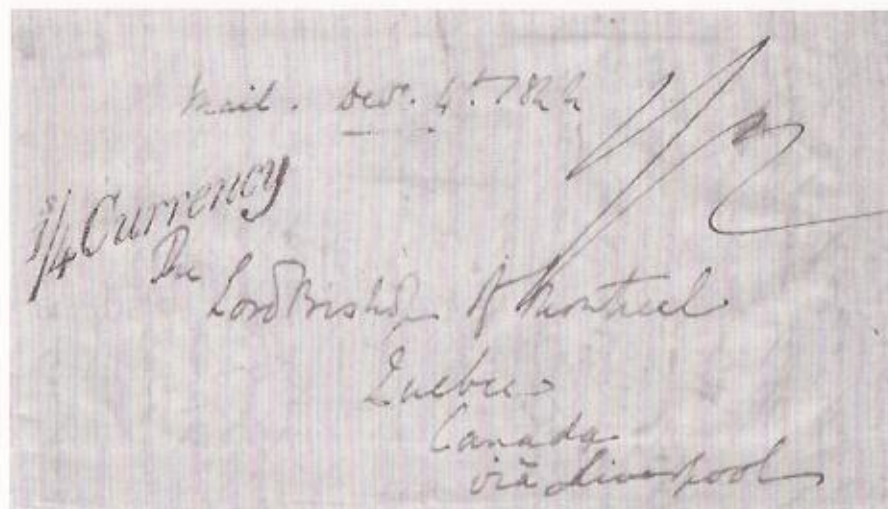 mail. Decr. 4th. 1844
1/2
1/4 Currency
The
Lord Bishop of Montreal
Quebec
Canada
via Liverpool